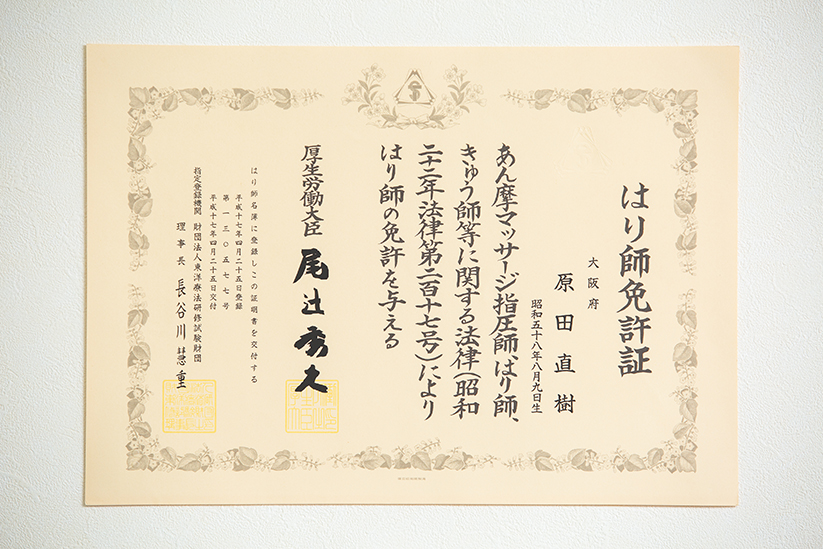 はり師免許証
大阪府
原田直樹
昭和五十八年八月九日生
あん摩マッサージ指圧師、はり師、
きゅう師等に関する法律(昭和
二十二年法律第二百十七号)により
はり師の免許を与える
厚生労働大臣 尾辻秀久
はり師名簿に登録しこの証明書を交付する
平成十七年四月二十五日登録
第一三〇五七七号
平成十七年四月二十五日交付
指定登録機関 財団法人東洋療法研修試験財団
理事長 長谷川慧重